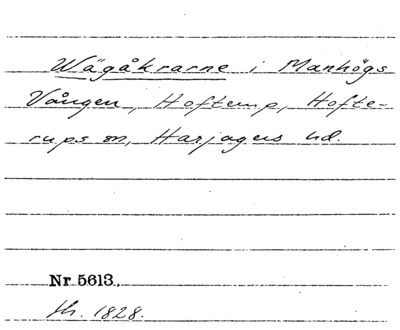 Wägåkrarne i Manhögs
Vången, Hofterup, Hofte-
rups sn, Harjagers hd.
Nr. 5613.
1828.